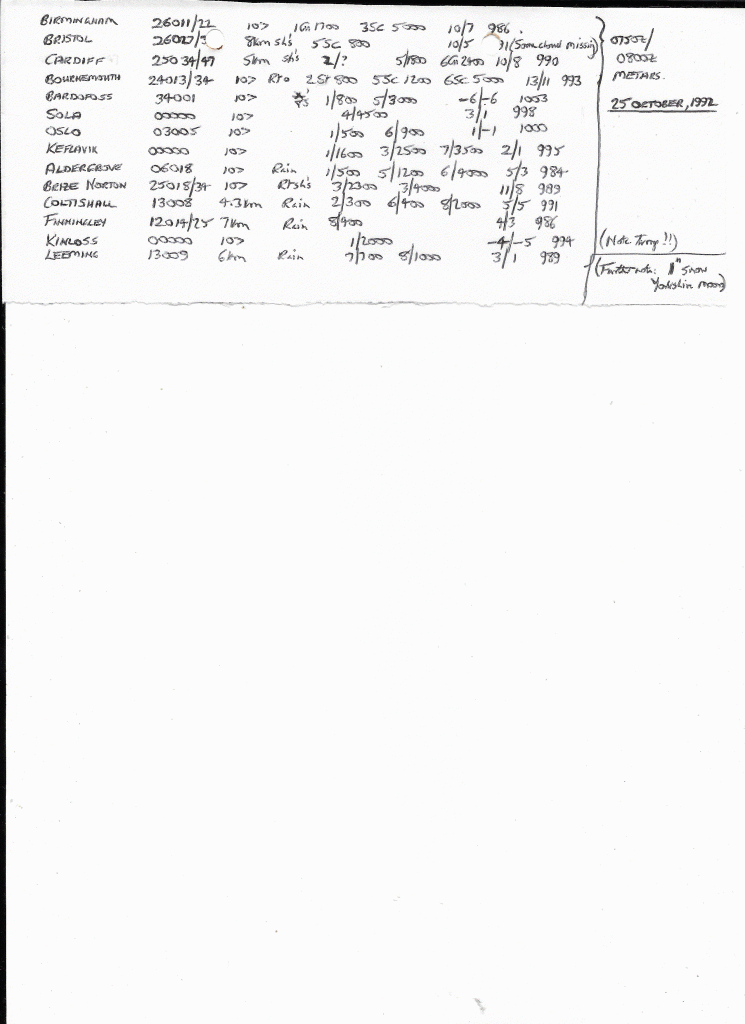 BIRMINGHAM 26011/22 10> 1Cu 1700 3SC 5000 10/7 986.
BRISTOL 8km sh's 5SC 800 10/5 (Some cloud missing)
CARDIFF 25034/47 5km sh's 2/? 5/800 6Cu 2400 10/8 990
BOURNEMOUTH 24013/34 10> 2St 800 5SC 1200 6SC 5000 13/11 993
BARDUFOSS 34001 10> 1/800 5/3000 -6/-6 1003
SOLA 00000 10> 4/4500 3/1 998
OSLO 03005 10> 1/500 6/900 1/-1 1000
KEFLAVIK 00000 10> 1/1600 3/2500 7/3500 2/1 995
ALDERGROVE 06018 10> Rain 1/500 5/1200 6/4000 5/3 984
BRIZE NORTON 25015/34 10> 3/2300 3/4000 11/8 989
COLTISHALL 13008 4.3km Rain 2/300 6/400 8/2000 5/5 991
FINNINGLEY 12014/25 7km Rain 8/400 4/3 986
KINLOSS 00000 10> 1/2000 -4/-5 994
LEEMING 13009 6km Rain 7/700 8/1000 3/1 989
0750Z/
0800Z
METARS.
25 OCTOBER, 1992
(Note Temp!!)
(Further note: 1" Snow
Yorkshire moors)